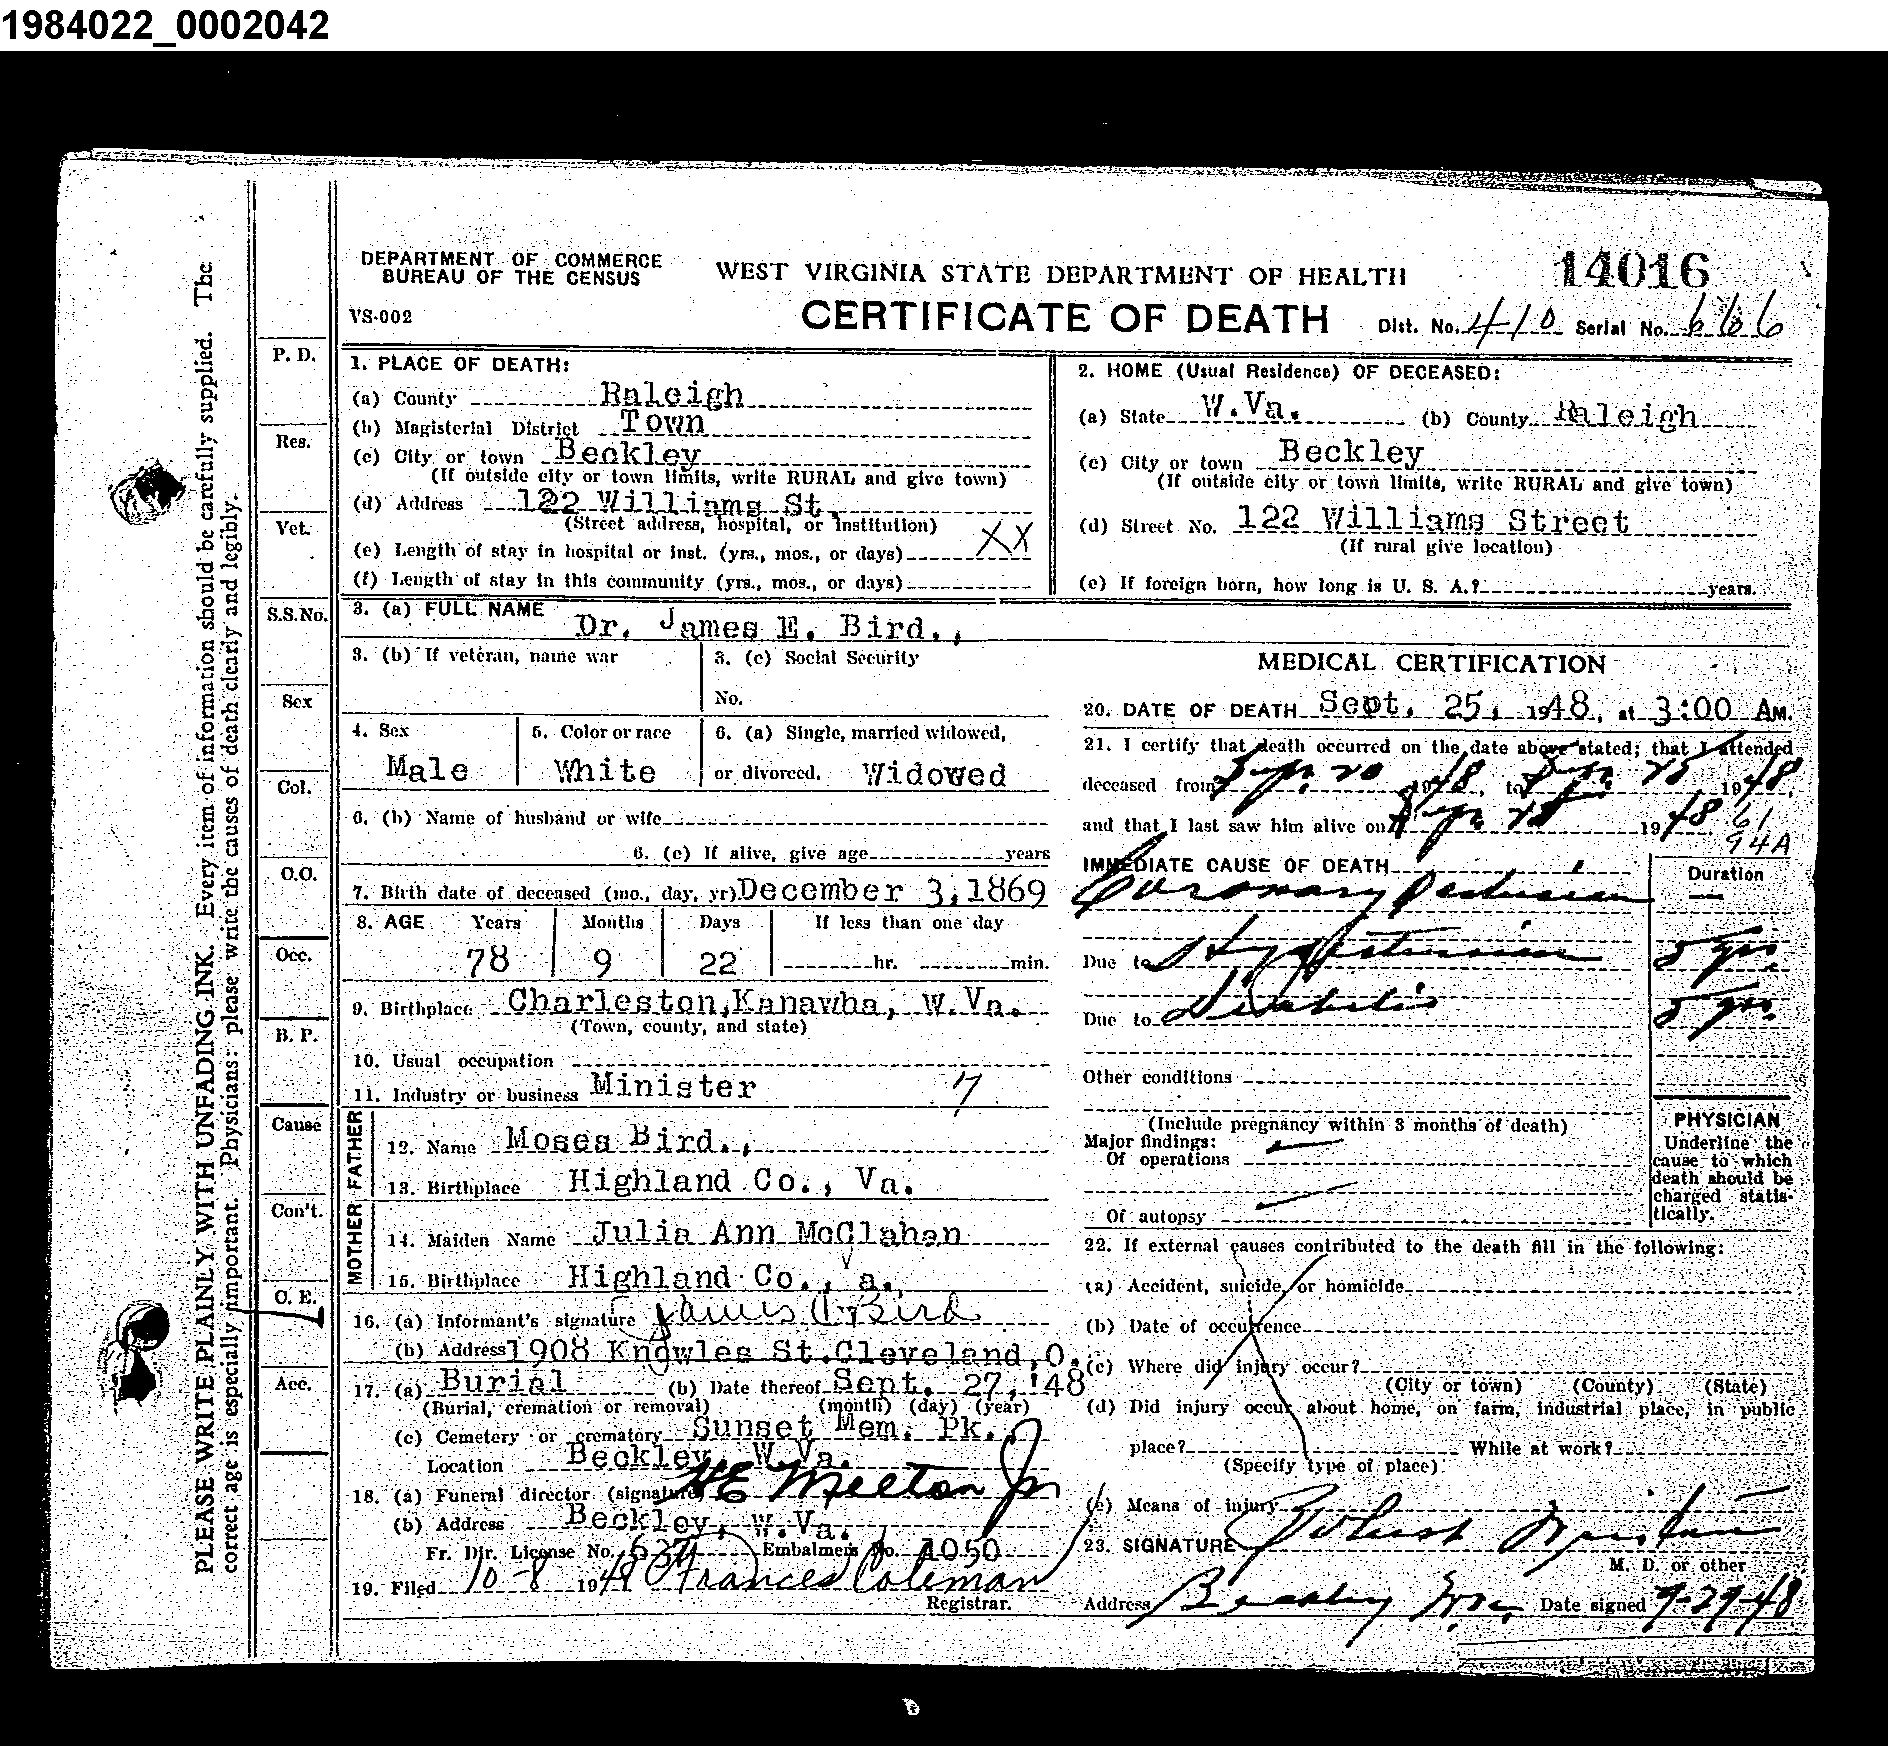 1984022_0002042
DEPARTMENT OF COMMERCE
BUREAU OF THE CENSUS
WEST VIRGINIA STATE DEPARTMENT OF HEALTH
14016
VS-002
CERTIFICATE OF DEATH
Dist. No. 410 Serial No. 666
PLEASE WRITE PLAINLY WITH UNFADING INK. Every item of information should be carefully supplied. The
correct age is especially important. Physicians: please write the causes of death clearly and legibly.
P. D.
Res.
Vet.
S.S.No.
Sex
Col.
O.O.
Occ.
B. P.
Cause
Con't.
O. E.
Acc.
1. PLACE OF DEATH:
(a) County Raleigh
(b) Magisterial District Town
(c) City or town Beckley
(If outside city or town limits, write RURAL and give town)
(d) Address 122 Williams St.
(Street address, hospital, or institution)
(e) Length of stay in hospital or inst. (yrs., mos., or days) XX
(f) Length of stay in this community (yrs., mos., or days)
2. HOME (Usual Residence) OF DECEASED:
(a) State W.Va. (b) County Raleigh
(c) City or town Beckley
(If outside city or town limits, write RURAL and give town)
(d) Street No. 122 Williams Street
(If rural give location)
(e) If foreign born, how long is U. S. A.? years.
3. (a) FULL NAME Dr. James E. Bird.,
3. (b) If veteran, name war
3. (c) Social Security
No.
4. Sex
Male
5. Color or race
White
6. (a) Single, married widowed,
or divorced. Widowed
6. (b) Name of husband or wife
6. (c) If alive, give age years
7. Birth date of deceased (mo., day, yr) December 3,1869
8. AGE Years Months Days If less than one day
78 9 22 hr. min.
9. Birthplace Charleston,Kanawha, W.Va.
(Town, county, and state)
10. Usual occupation
11. Industry or business Minister 7
FATHER
12. Name Moses Bird.,
13. Birthplace Highland Co., Va.
MOTHER
14. Maiden Name Julia Ann McClahan
15. Birthplace Highland Co., Va.
16. (a) Informant's signature James Bird
(b) Address 1908 Knowles St.Cleveland,O.
17. (a) Burial (b) Date thereof Sept. 27,'48
(Burial, cremation or removal) (month) (day) (year)
(c) Cemetery or crematory Sunset Mem. Pk.,
Location Beckley, W.Va.
18. (a) Funeral director (signature) H E Melton Jr
(b) Address Beckley, W.Va.
Fr. Dir. License No. 637 Embalmers No. 1050
19. Filed 10-8 1948 Frances Coleman
Registrar.
MEDICAL CERTIFICATION
20. DATE OF DEATH Sept. 25, 1948, at 3:00 AM.
21. I certify that death occurred on the date above stated; that I attended
deceased from Sept. 20 1948, to Sept. 25 1948
and that I last saw him alive on Sept 1948
61
94A
IMMEDIATE CAUSE OF DEATH
Duration
Coronary Occlusion —
Due to Hypertension 5 yrs.
Due to Diabetis 5 yrs.
Other conditions
(Include pregnancy within 3 months of death)
Major findings:
Of operations
Of autopsy
PHYSICIAN
Underline the
cause to which
death should be
charged statis-
tically.
22. If external causes contributed to the death fill in the following:
(a) Accident, suicide, or homicide
(b) Date of occurrence
(c) Where did injury occur?
(City or town) (County) (State)
(d) Did injury occur about home, on farm, industrial place, in public
place? While at work?
(Specify type of place)
(e) Means of injury
23. SIGNATURE Robert
M. D. or other
Address Beckley W.Va. Date signed 9-29-48